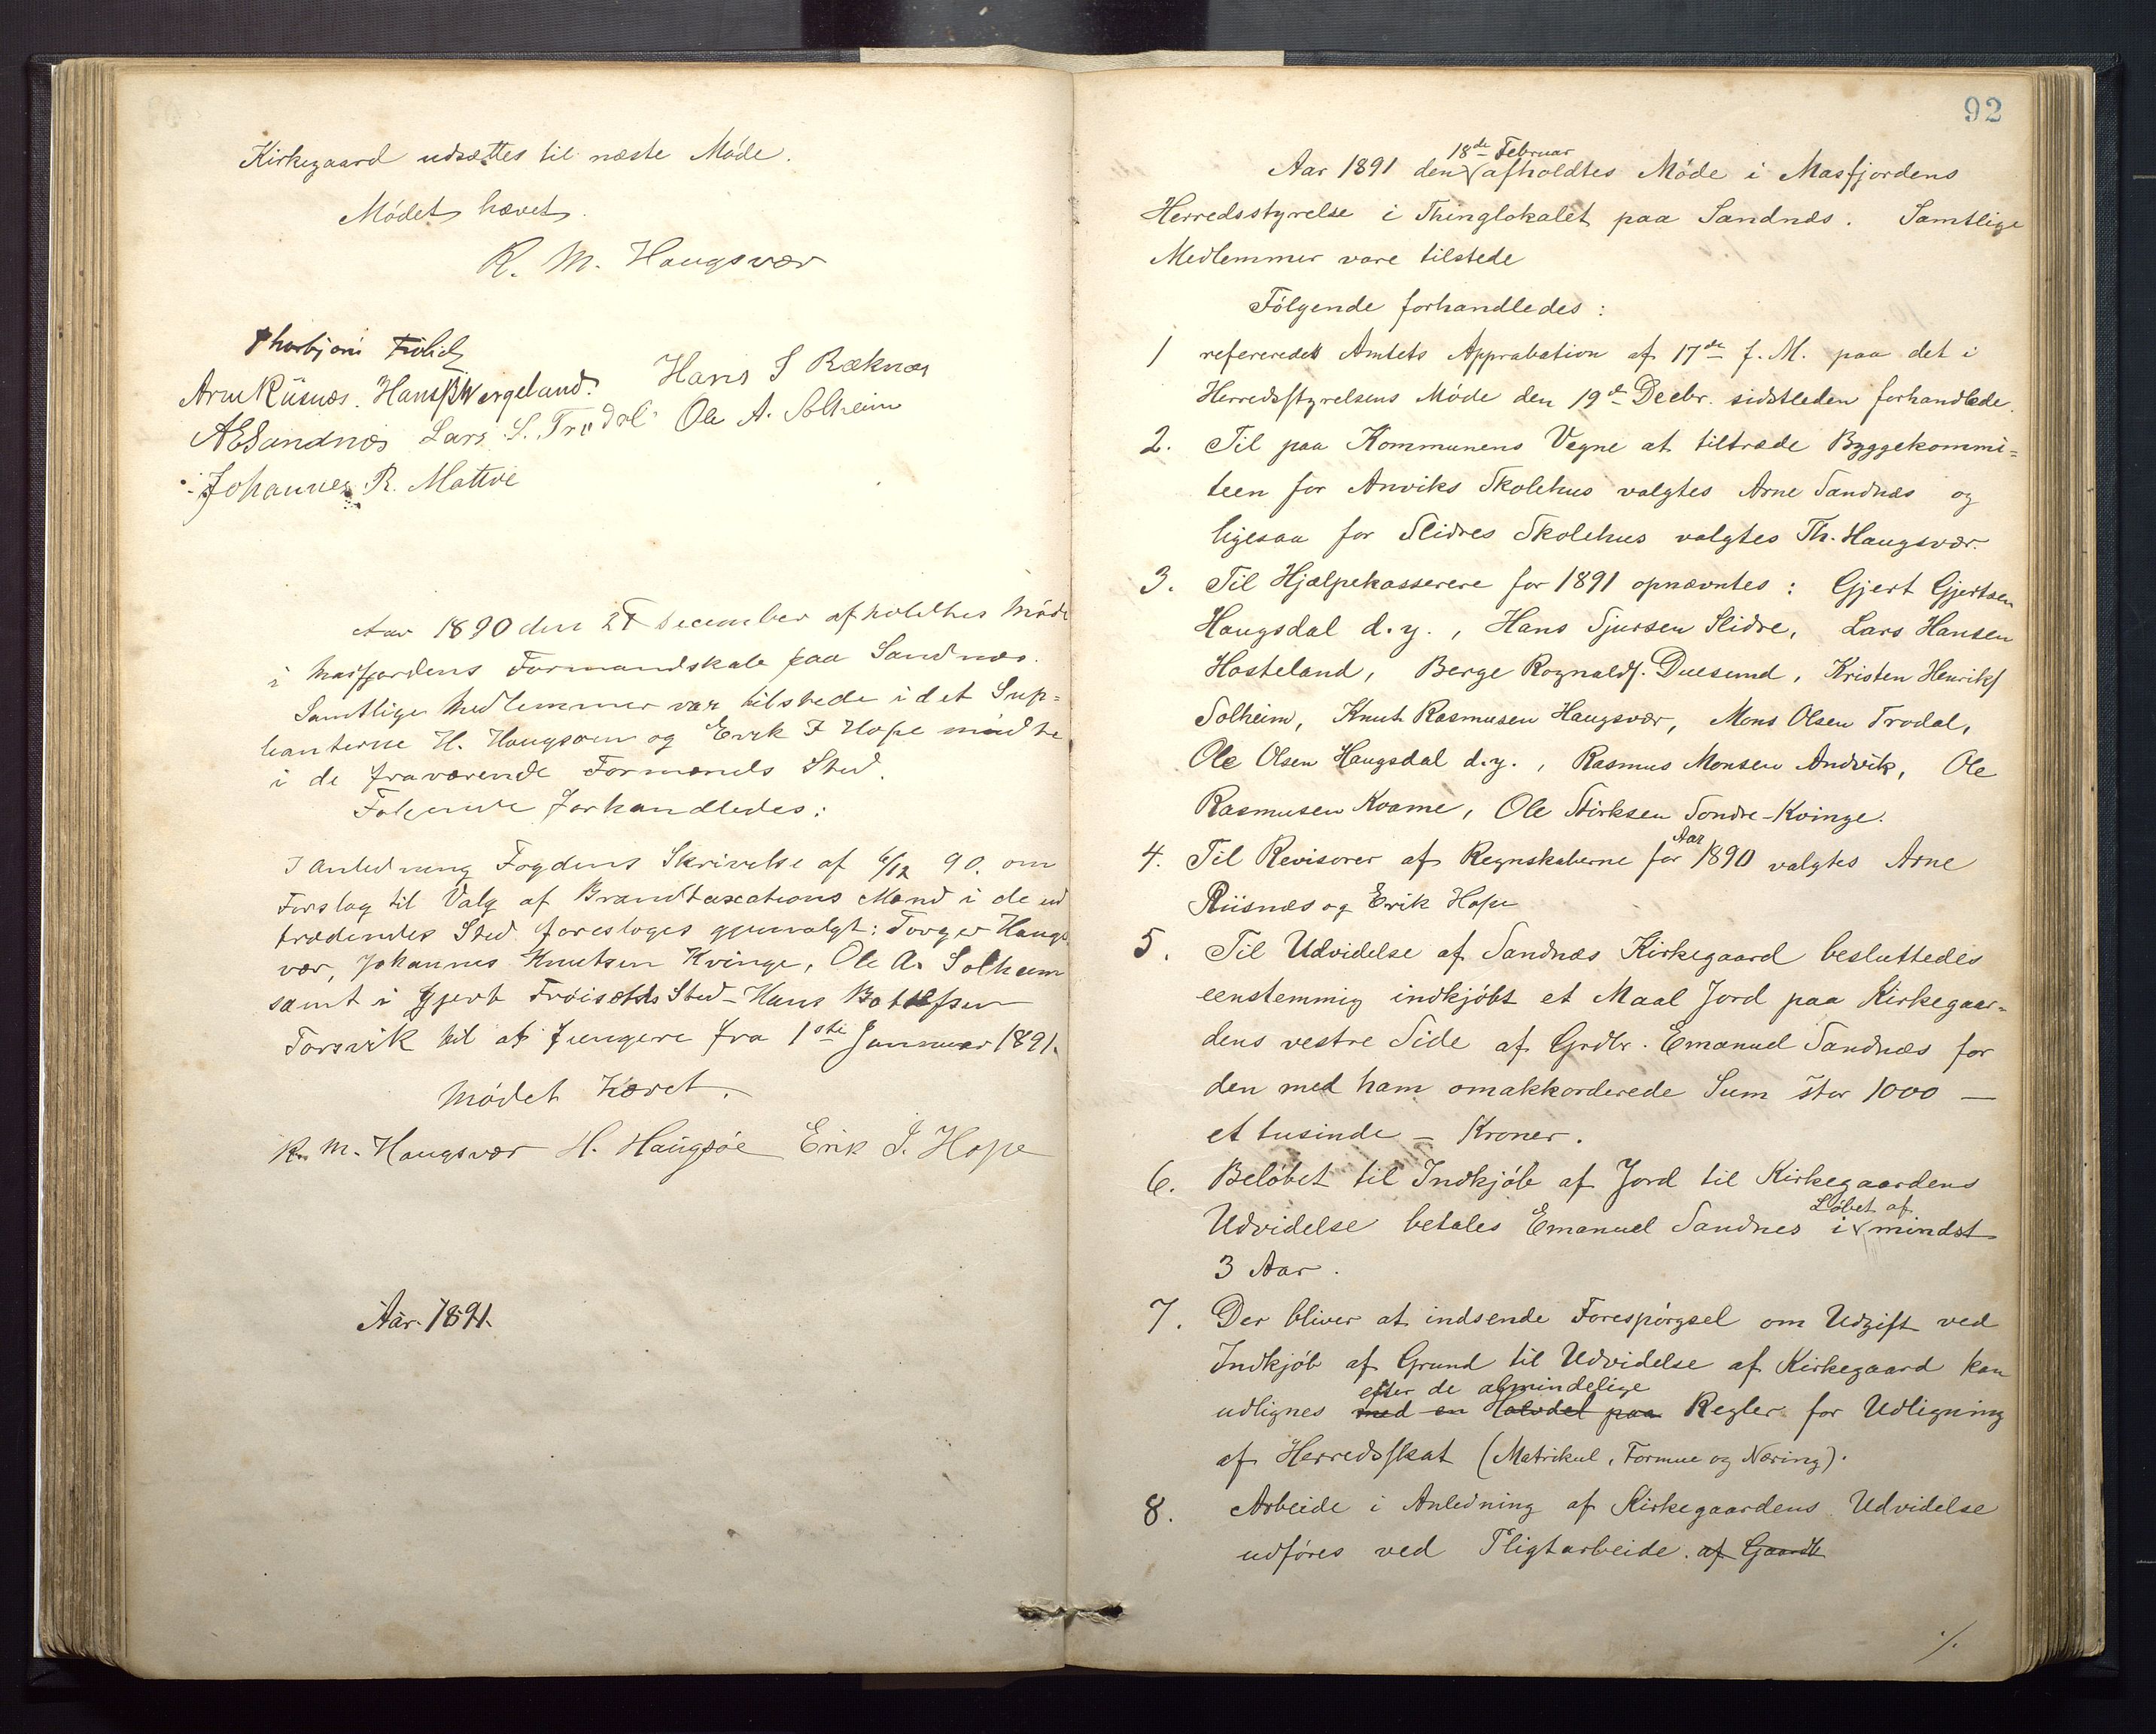 Kirkegaard udsættes til næste Møde.
Mødet hævet.
R. M. Haugsvær
Thorbjørn Frölid
Arne Riisnæs. Hans B Wergeland. Hans S Ræknes
AESandnæs Lars S. Trodal Ole A. Solheim
Johannes R. Matre
Aar 1890 den 27 December afholdtes Møde
i Masfjordens Formandskab paa Sandnæs.
Samtlige Medlemmer var tilstede idet Sup-
leanterne H. Haugsøen og Erik I Hope mødte
i de fraværende Formænds Sted.
Følgende forhandledes:
I Anledning Fogdens Skrivelse af 6/12 90. om
Forslag til Valg af Brandtaxations Mænd i de ud
trædendes Sted foresloges gjenvalgt: Torger Haugs
vær, Johannes Knutsen Kvinge, Ole A. Solheim
samt i Gjert Frøisæths Sted - Hans Botolfsen
Torsvik til at fungere fra 1ste Januar 1891.
Mødet hævet.
R. M. Haugsvær H. Haugsøe Erik I. Hope
Aar 1891.
92
18de Februar
Aar 1891 den afholdtes Møde i Masfjordens
Herredsstyrelse i Thinglokalet paa Sandnæs. Samtlige
Medlemmer vare tilstede
Følgende forhandledes:
1 refereredes Amtets Approbation af 17de f. M. paa det i
Herredsstyrelsens Møde den 19de Decbr. sidstleden forhandlede.
2. Til paa Kommunens Vegne at tiltræde Byggekommi-
teen for Anviks Skolehus valgtes Arne Sandnæs og
ligesaa for Slidres Skolehus valgtes Th. Haugsvær.
3. Til Hjælpekasserere for 1891 opnævntes: Gjert Gjertsen
Haugsdal d. y., Hans Sjursen Slidre, Lars Hansen
Hosteland, Berge Rognalds. Duesund, Kristen Henriks
Solheim, Knut Rasmusen Haugsvær, Mons Olsen Trodal,
Ole Olsen Haugsdal d. y., Rasmus Monsen Andvik, Ole
Rasmusen Kvame, Ole Stirksen Søndre-Kvinge.
Aar
4. Til Revisorer af Regnskaberne for 1890 valgtes Arne
Riisnæs og Erik Hope
5. Til Udvidelse af Sandnæs Kirkegaard besluttedes
eenstemmig indkjøbt et Maal Jord paa Kirkegaar-
dens vestre Side af Grdbr. Emanuel Sandnæs for
den med ham omakkorderede Sum stor 1000 —
et tusinde — Kroner.
6. Beløbet til Indkjøb af Jord til Kirkegaardens
Løbet af
Udvidelse betales Emanuel Sandnes i mindst
3 Aar.
7. Der bliver at indsende Forespørgsel om Udgift ved
Indkjøb af Grund til Udvidelse af Kirkegaard kan
efter de almindelige
udlignes med en Halvdel paa Regler for Udligning
af Herredsskat (Matrikul, Formue og Næring).
8. Arbeide i Anledning af Kirkegaardens Udvidelse
udføres ved Pligtarbeide. af Gaardb
./.